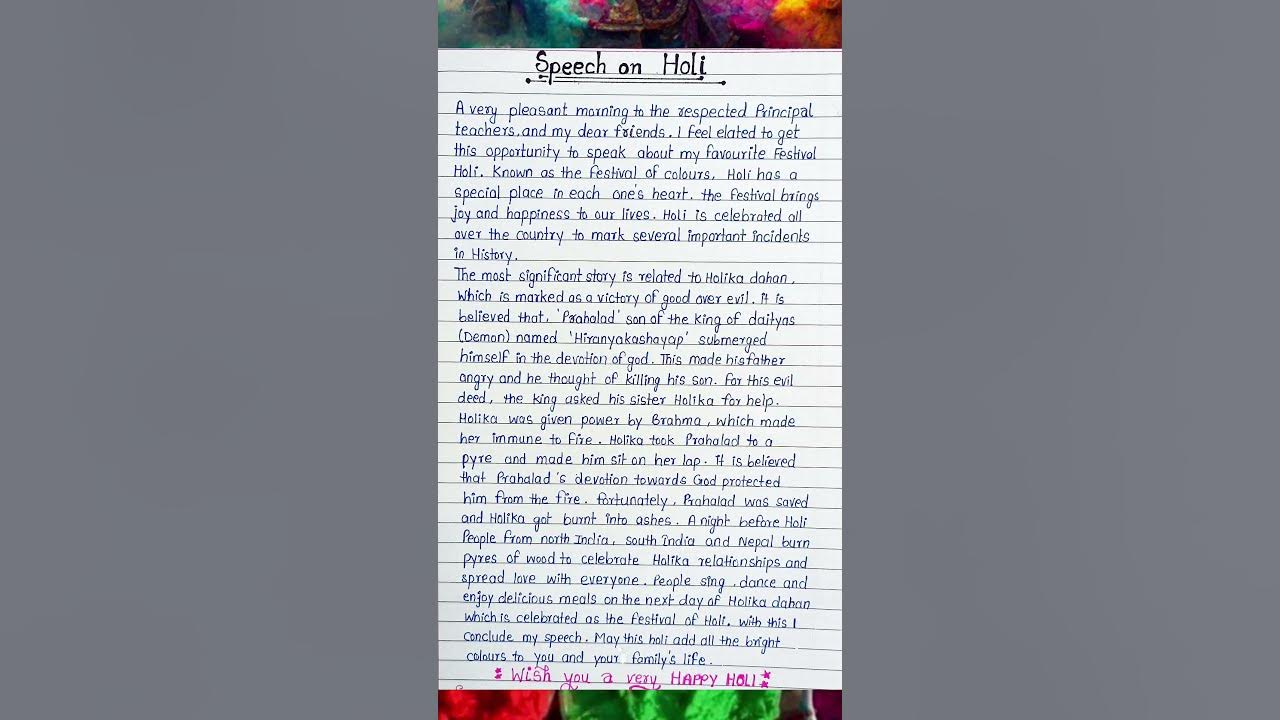 Speech on Holi
A very pleasant morning to the respected Principal
teachers, and my dear friends. I feel elated to get
this opportunity to speak about my favourite Festival
Holi. Known as the festival of colours, Holi has a
special place in each one's heart. the festival brings
joy and happiness to our lives. Holi is celebrated all
over the country to mark several important incidents
in History.
The most significant story is related to Holika dahan,
Which is marked as a victory of good over evil. it is
believed that, 'Prahalad' son of the king of daityas
(Demon) named 'Hiranyakashayap' submerged
himself in the devotion of god. This made his father
angry and he thought of killing his son. For this evil
deed, the king asked his sister Holika for help.
Holika was given power by Brahma, which made
her immune to fire. Holika took Prahalad to a
pyre and made him sit on her lap. it is believed
that Prahalad's devotion towards God protected
him from the fire. fortunately, Prahalad was saved
and Holika got burnt into ashes. A night before Holi
People from north India, south india and Nepal burn
pyres of wood to celebrate Holika relationships and
spread love with everyone. People sing, dance and
enjoy delicious meals on the next day of Holika dahan
which is celebrated as the festival of Holi. with this I
conclude my speech. May this holi add all the bright
colours to you and your family's life.
Wish you a very HAPPY HOLI